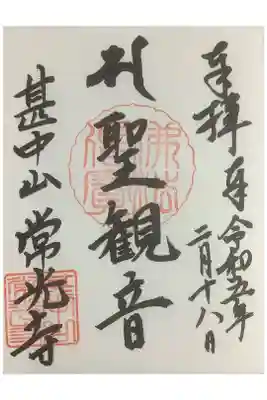 奉拝
令和五年
二月十八日
聖観音
甚中山
常光寺